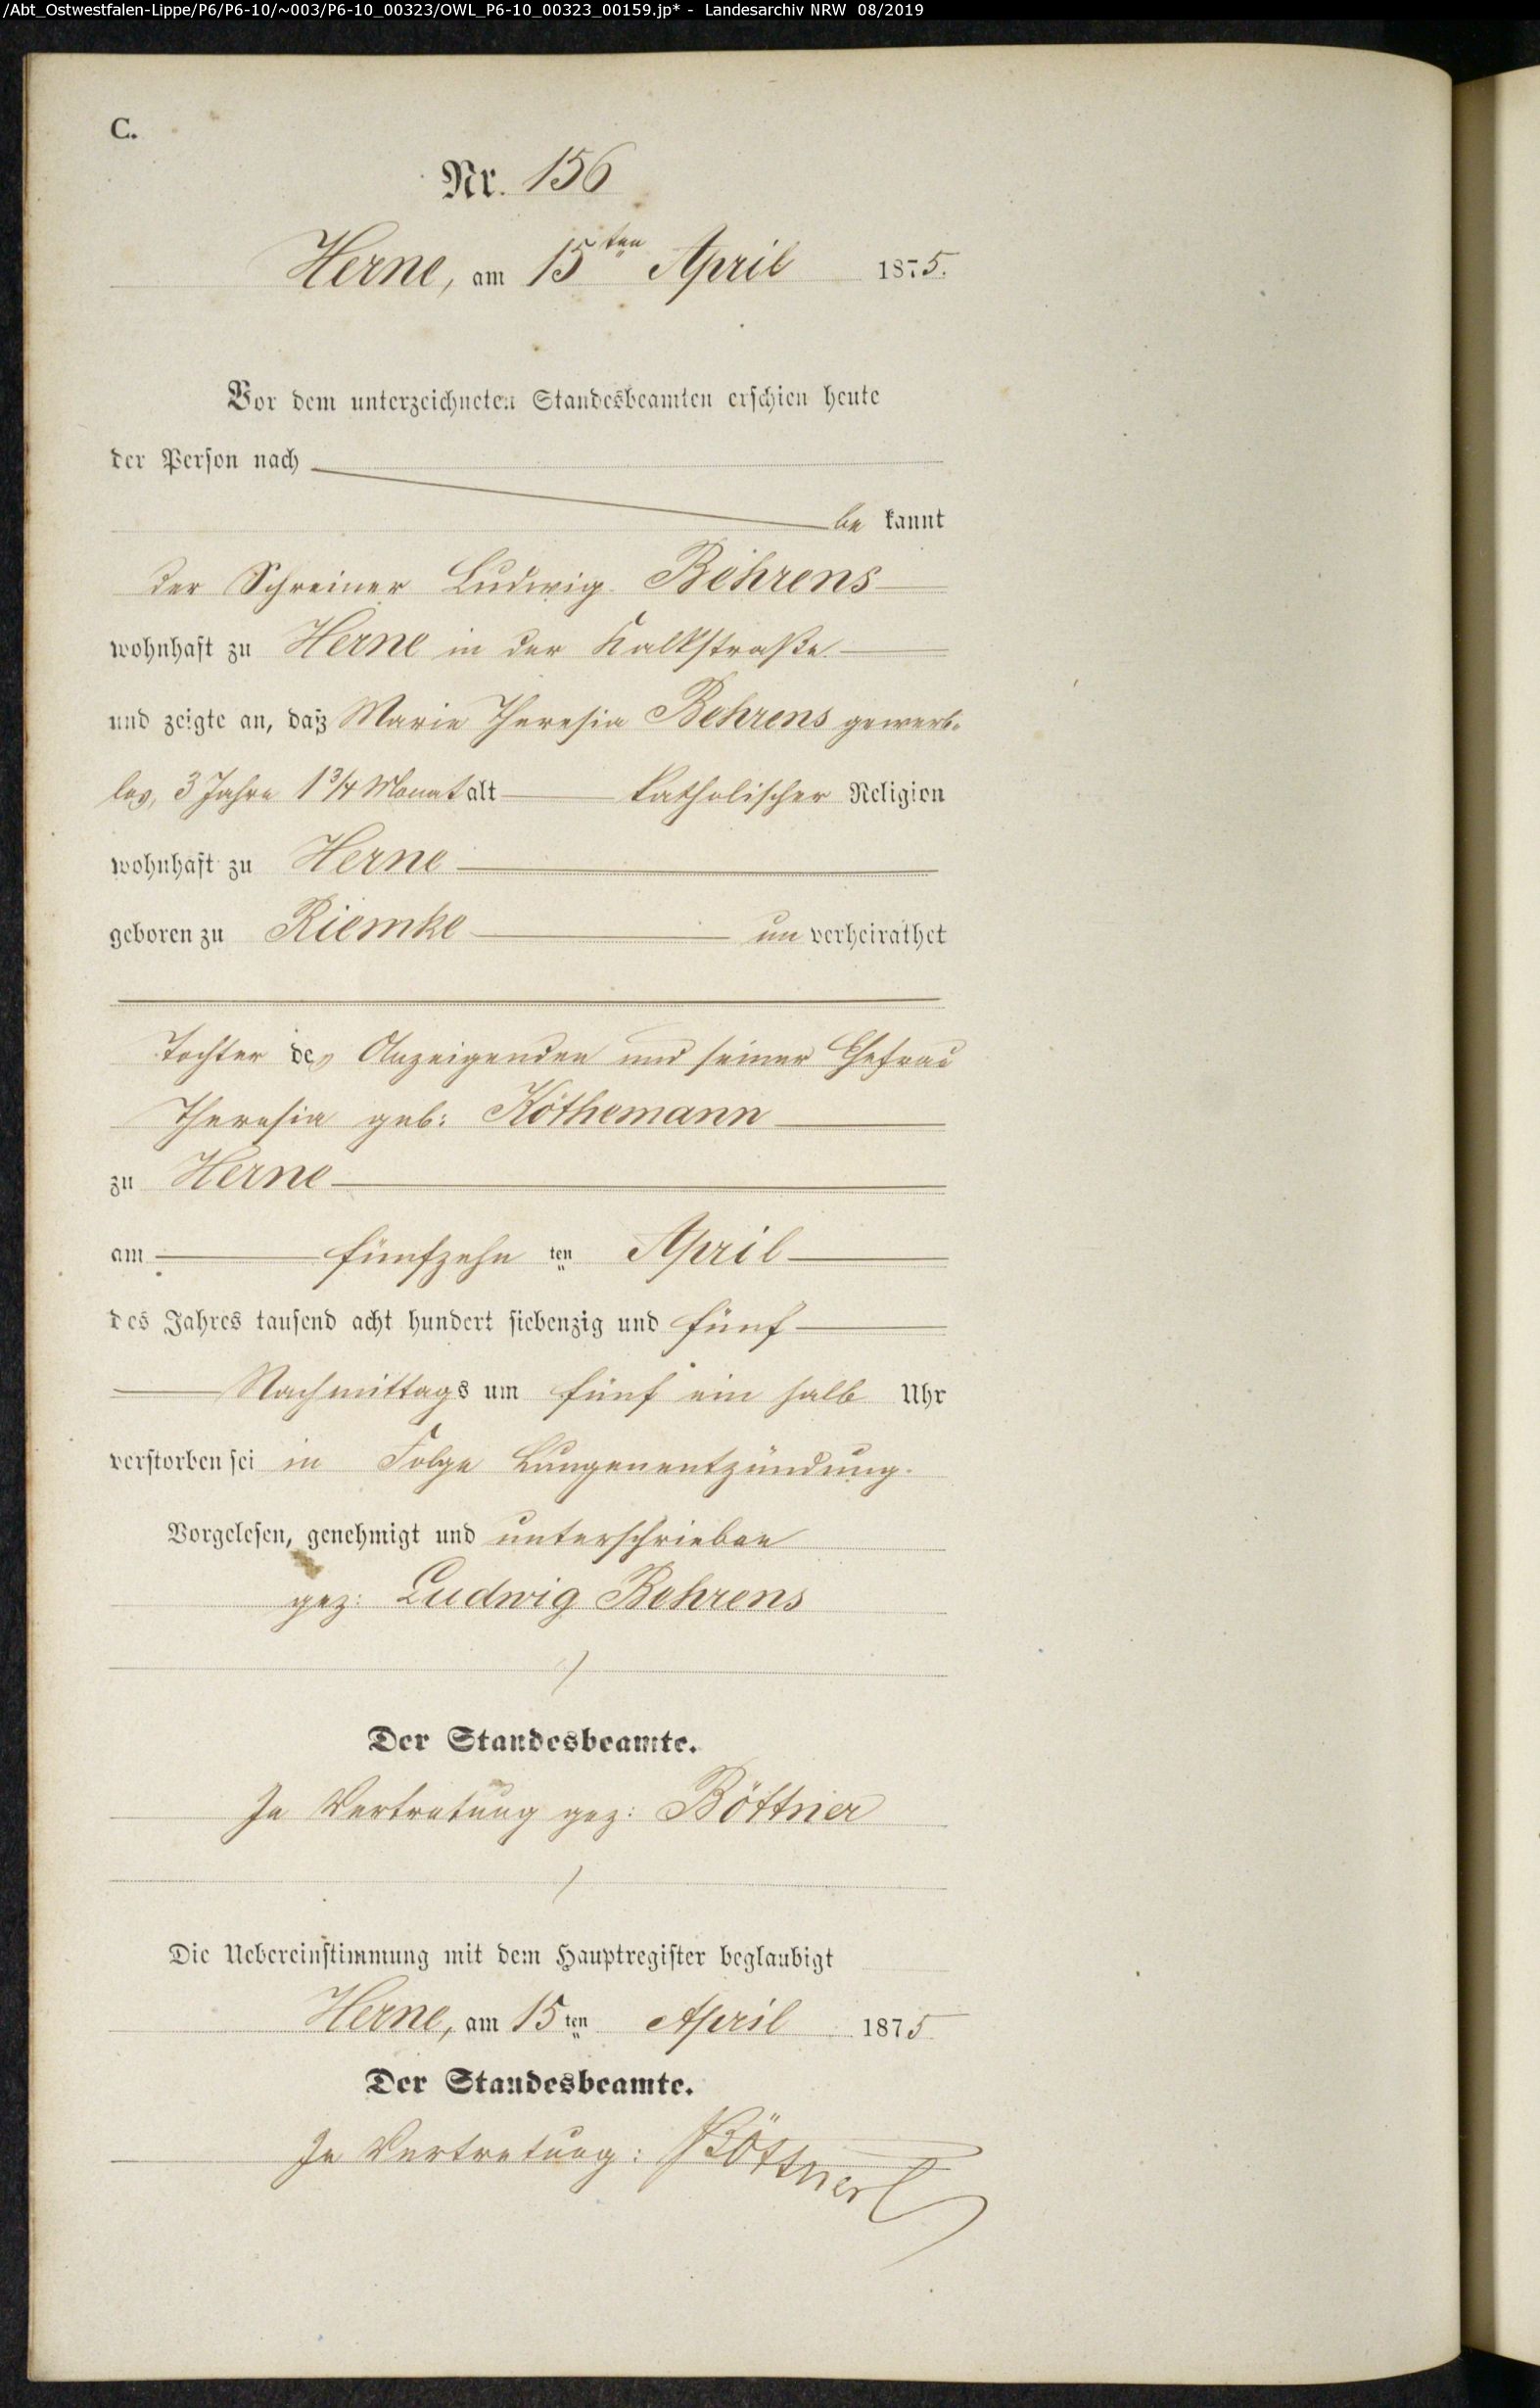 /Abt_Ostwestfalen-Lippe/P6/P6-10/~003/P6-10_00323/OWL_P6-10_00323_00159.jp* - Landesarchiv NRW 08/2019
C.
Nr. 156
Herne, am 15ten April 1875.
Vor dem unterzeichneten Standesbeamten erschien heute
der Person nach
be kannt
der Schreiner Ludwig Behrens
wohnhaft zu Herne in der Kalkstraße
und zeigte an, daß Marie Theresia Behrens gewerb-
los, 3 Jahre 1 3/4 Monat alt katholischer Religion
wohnhaft zu Herne
geboren zu Riemke un verheirathet
Tochter des Anzeigenden und seiner Ehefrau
Theresia geb: Köthemann
zu Herne
am fünfzehn ten April
des Jahres tausend acht hundert siebenzig und fünf
Nachmittags um fünf ein halb Uhr
verstorben sei in Folge Lungenentzündung.
Vorgelesen, genehmigt und unterschrieben
gez: Ludwig Behrens
Der Standesbeamte.
In Vertretung gez: Böttner
Die Uebereinstimmung mit dem Hauptregister beglaubigt
Herne, am 15 ten April 1875
Der Standesbeamte.
In Vertretung: Böttner